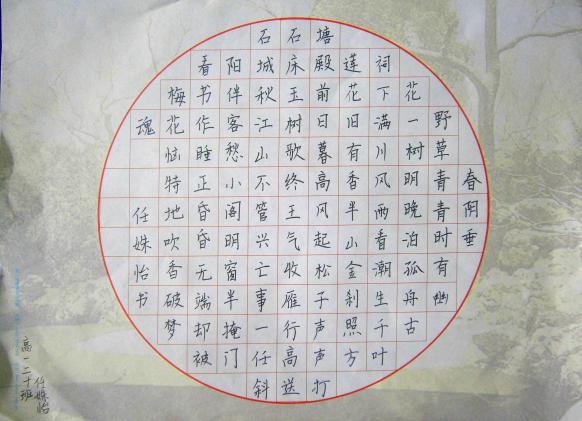 春阴垂
野草青青时有幽
花一树明晚泊孤舟古
祠下满川风雨看潮生千叶
莲花旧有香半山金刹照方
塘殿前日暮高风起松子声声打
石床玉树歌终王气收雁行高送
石城秋江山不管兴亡事一任斜
阳伴客愁小阁明窗半掩门
看书作睡正昏昏无端却被
梅花恼特地吹香破梦
魂
任姝怡书
高一二十班
任姝怡